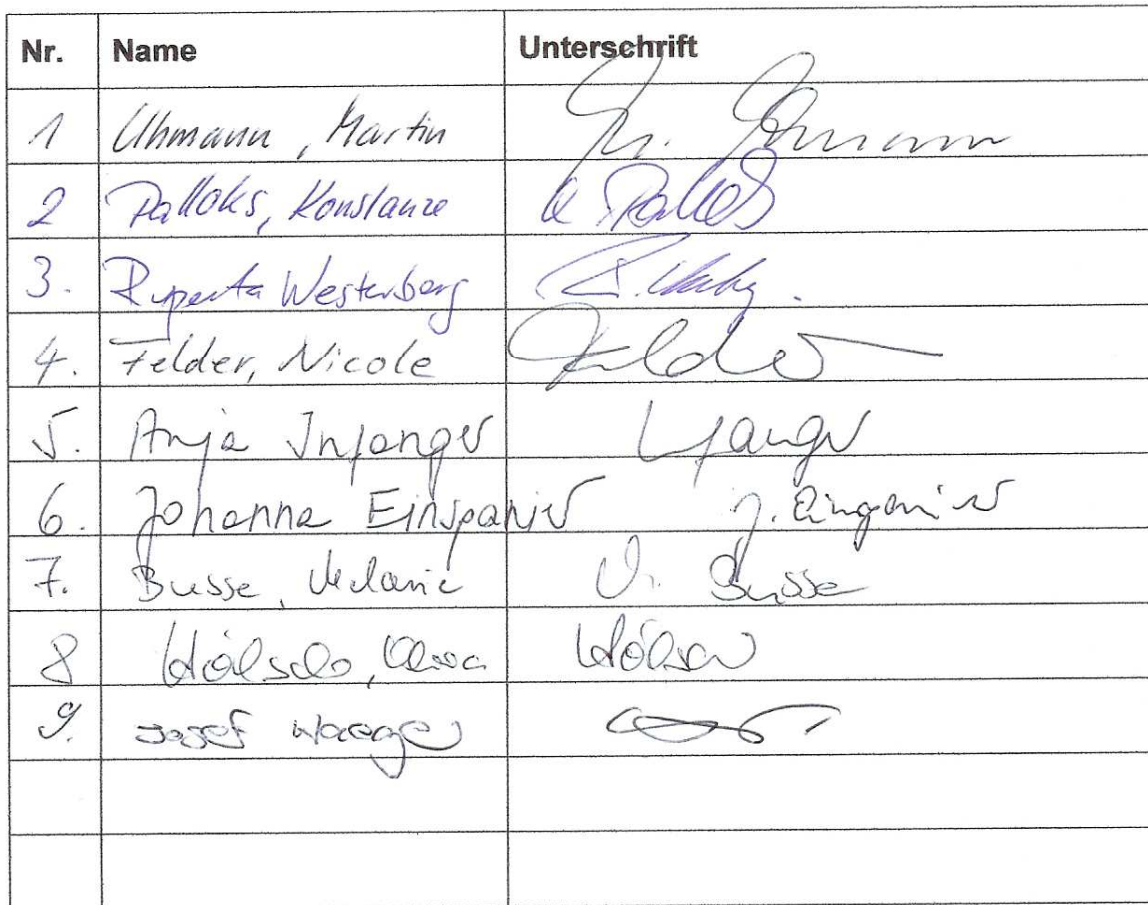 Nr. Name Unterschrift
1 Uhmann, Martin M. Uhmann
2 Palloks, Konstanze K. Palloks
3. Ruperta Westerberg
4. Felder, Nicole Felder
5. Anja Infanger Infanger
6. Johanna Einspanier J. Einspanier
7. Busse, Melanie M. Busse
8
9. Josef